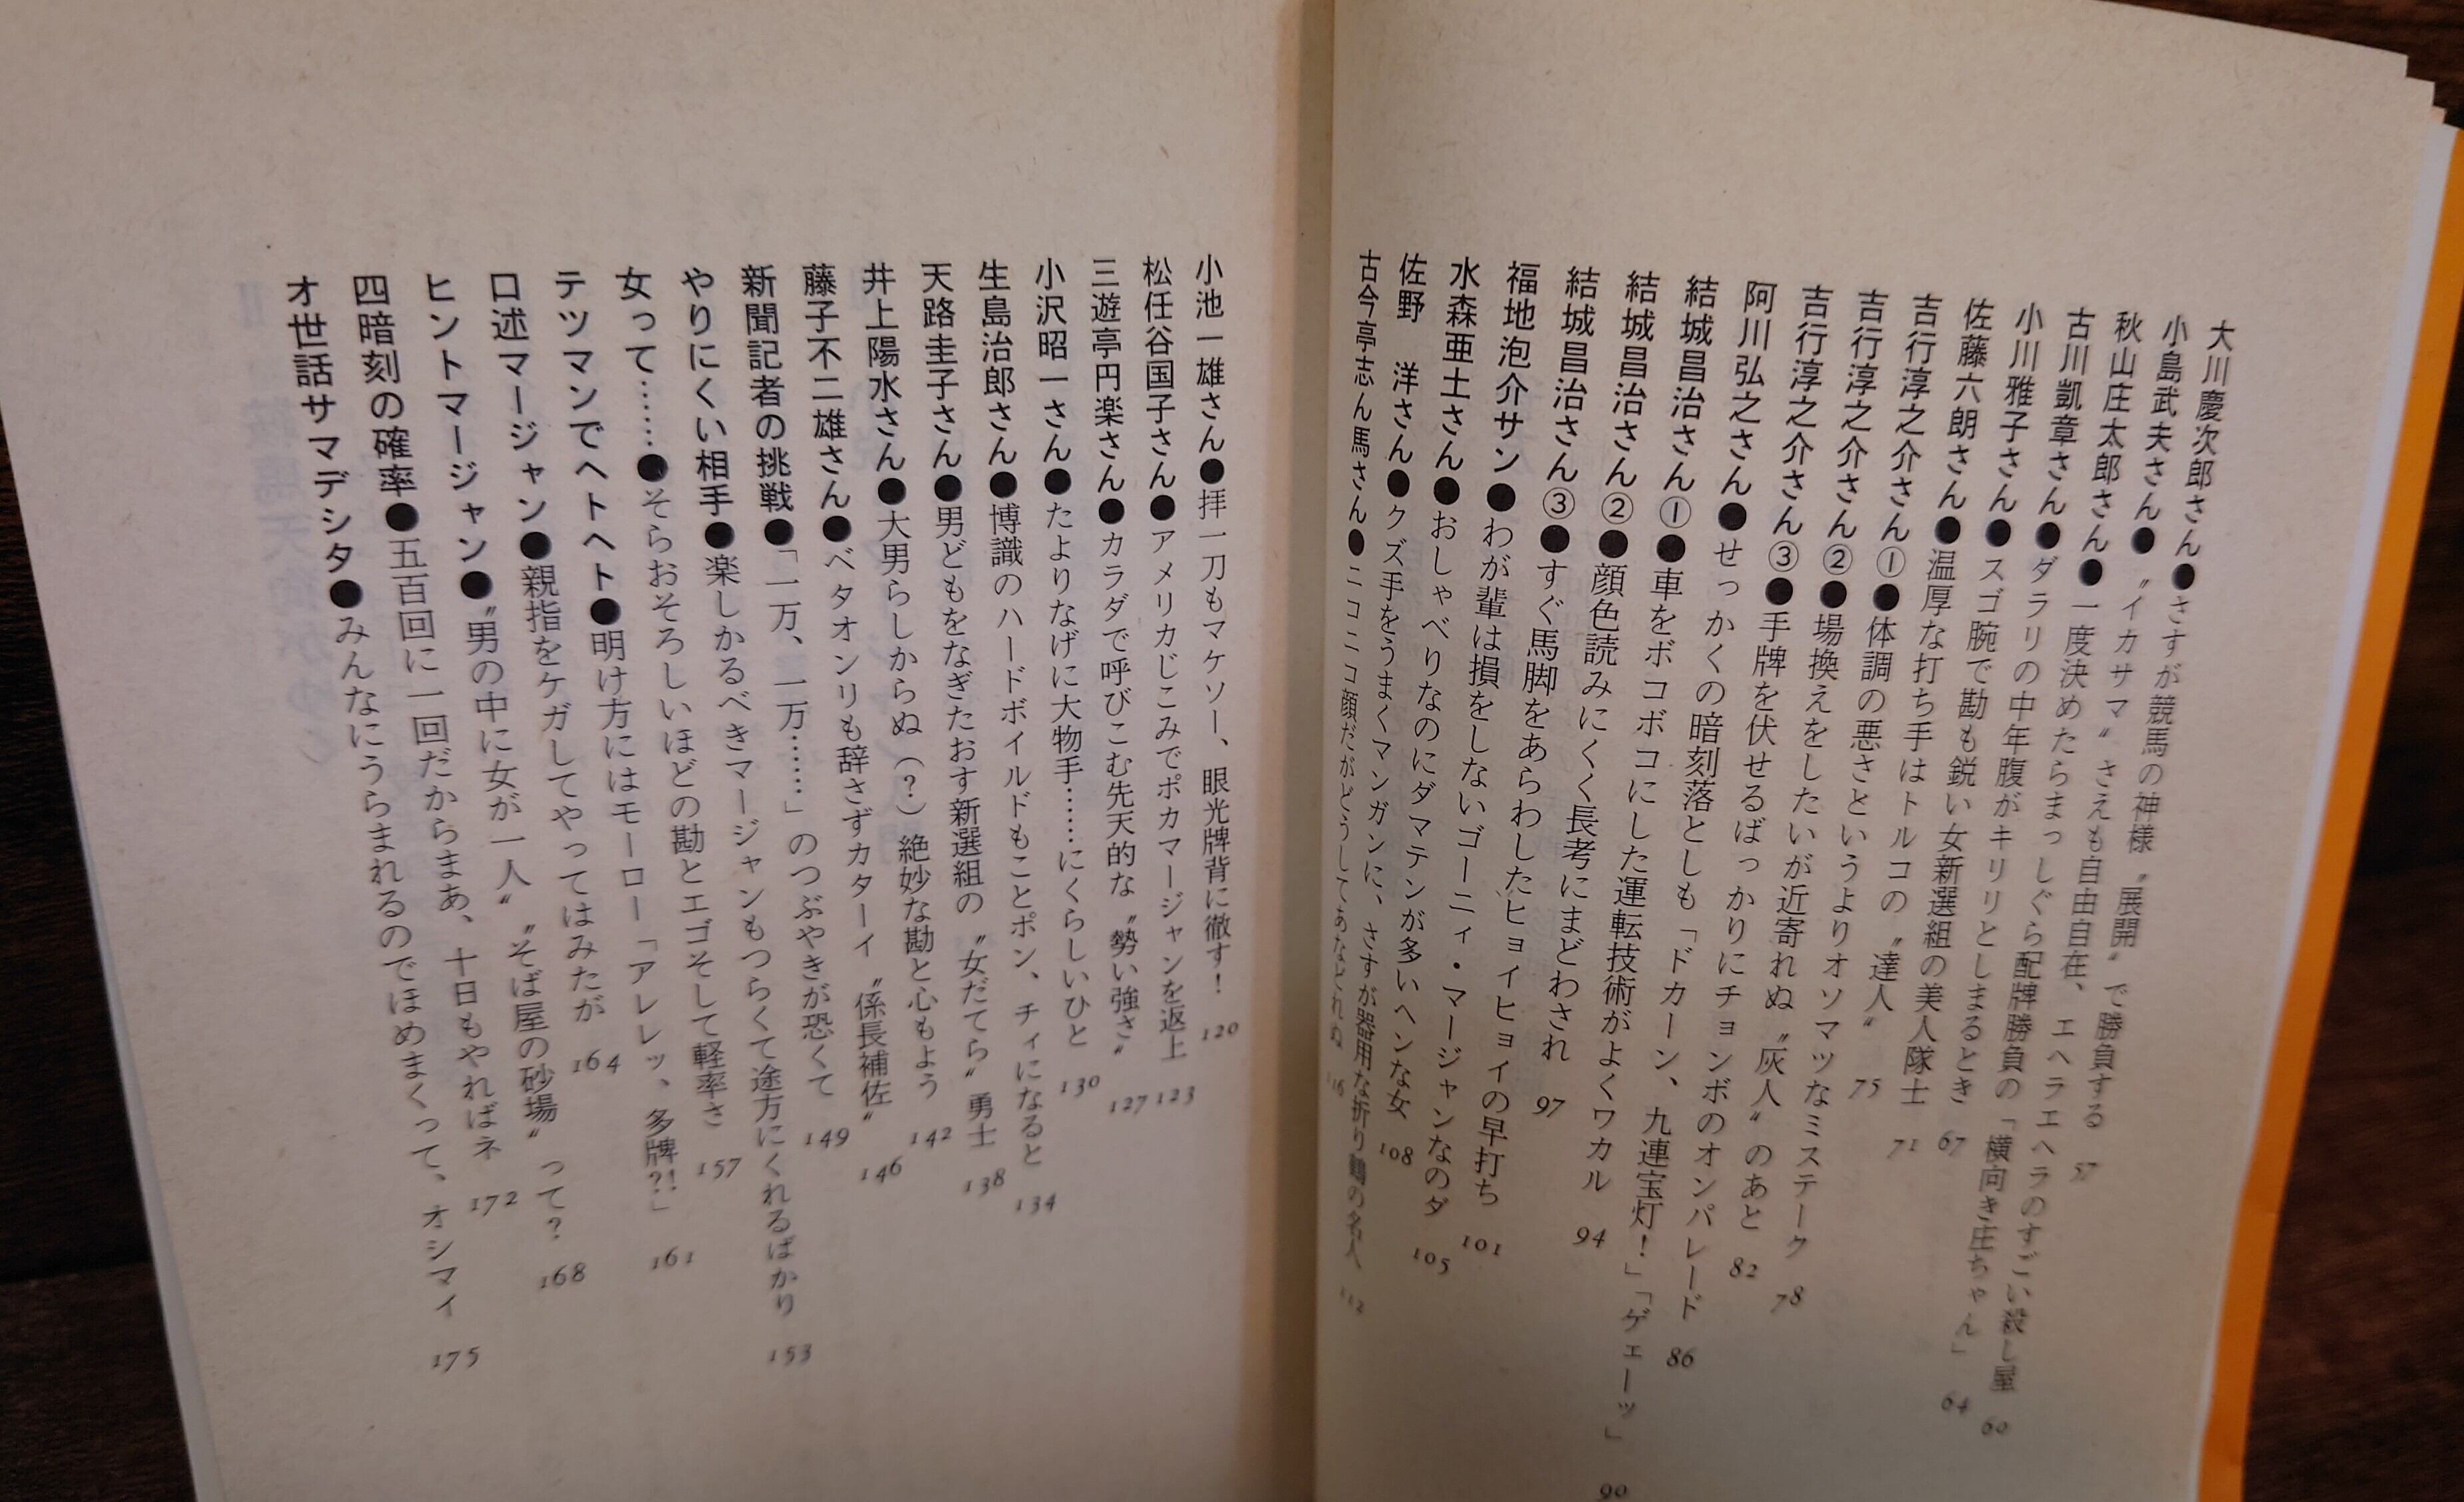 大川慶次郎さん●さすが競馬の神様〝展開〟で勝負する 57
小島武夫さん●〝イカサマ〟さえも自由自在、エヘラエヘラのすごい殺し屋 60
秋山庄太郎さん●一度決めたらまっしぐら配牌勝負の「横向き庄ちゃん」 64
古川凱章さん●ダラリの中年腹がキリリとしまるとき 67
小川雅子さん●スゴ腕で勘も鋭い女新選組の美人隊士 71
佐藤六朗さん●温厚な打ち手はトルコの〝達人〟 75
吉行淳之介さん①●体調の悪さというよりオソマツなミステーク 78
吉行淳之介さん②●場換えをしたいが近寄れぬ〝灰人〟のあと 82
吉行淳之介さん③●手牌を伏せるばっかりにチョンボのオンパレード 86
阿川弘之さん●せっかくの暗刻落としも「ドカーン、九連宝灯!」「ゲェーッ」 90
結城昌治さん①●車をボコボコにした運転技術がよくワカル 94
結城昌治さん②●顔色読みにくく長考にまどわされ 97
結城昌治さん③●すぐ馬脚をあらわしたヒョイヒョイの早打ち 101
福地泡介サン●わが輩は損をしないゴーニィ・マージャンなのダ 105
水森亜土さん●おしゃべりなのにダマテンが多いヘンな女 108
佐野 洋さん●クズ手をうまくマンガンに、さすが器用な折り鶴の名人 112
古今亭志ん馬さん●ニコニコ顔だがどうしてあなどれぬ 116
小池一雄さん●拝一刀もマケソー、眼光牌背に徹す! 120
松任谷国子さん●アメリカじこみでポカマージャンを返上 123
三遊亭円楽さん●カラダで呼びこむ先天的な〝勢い強さ〟 127
小沢昭一さん●たよりなげに大物手……にくらしいひと 130
生島治郎さん●博識のハードボイルドもことポン、チィになると 134
天路圭子さん●男どもをなぎたおす新選組の〝女だてら〟勇士 138
井上陽水さん●大男らしからぬ(?)絶妙な勘と心もよう 142
藤子不二雄さん●ベタオンリも辞さずカターイ〝係長補佐〟 146
新聞記者の挑戦●「一万、一万……」のつぶやきが恐くて 149
やりにくい相手●楽しかるべきマージャンもつらくて途方にくれるばかり 153
女って……●そらおそろしいほどの勘とエゴそして軽率さ 157
テツマンでヘトヘト●明け方にはモーロー「アレレッ、多牌?!」 161
口述マージャン●親指をケガしてやってはみたが 164
ヒントマージャン●〝男の中に女が一人〟〝そば屋の砂場〟って? 168
四暗刻の確率●五百回に一回だからまあ、十日もやればネ 172
オ世話サマデシタ●みんなにうらまれるのでほめまくって、オシマイ 175